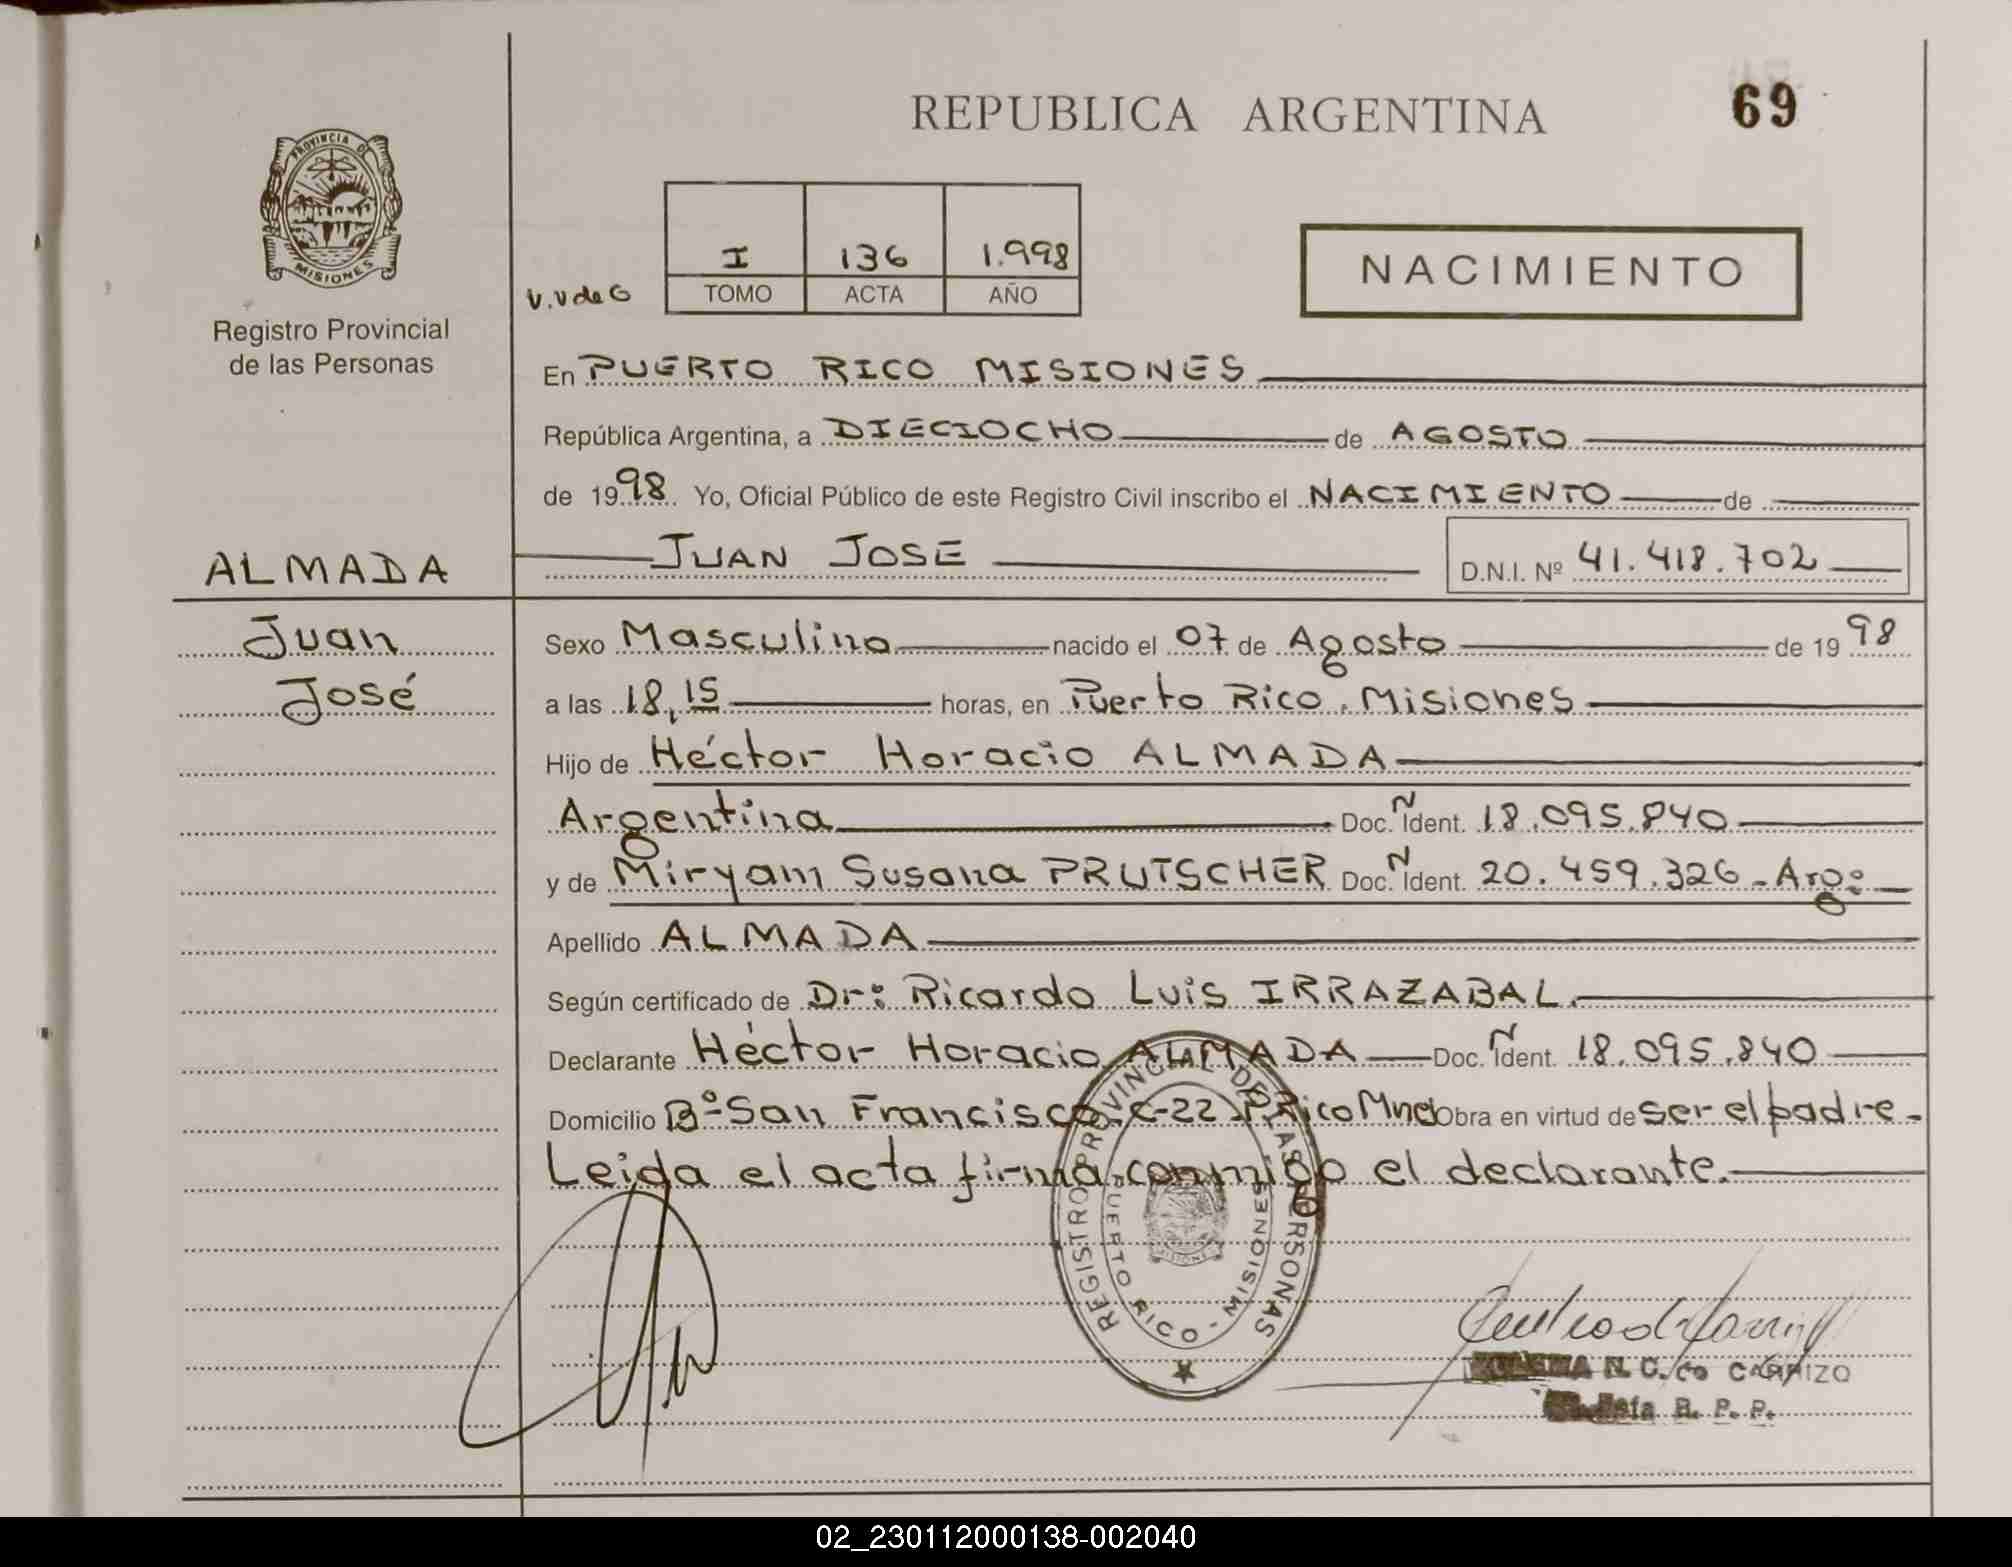 REPUBLICA ARGENTINA
69
PROVINCIA DE
MISIONES
Registro Provincial
de las Personas
V.V de G
I 136 1.998
TOMO ACTA AÑO
NACIMIENTO
En PUERTO RICO MISIONES
República Argentina, a DIECIOCHO de AGOSTO
de 1998 Yo, Oficial Público de este Registro Civil inscribo el NACIMIENTO de
JUAN JOSE D.N.I. Nº 41.418.702
ALMADA
Juan
José
Sexo Masculino nacido el 07 de Agosto de 1998
a las 18,15 horas, en Puerto Rico. Misiones
Hijo de Héctor Horacio ALMADA
Argentina Doc. Ñ Ident. 18.095.840
y de Miryam Susana PRUTSCHER Doc. Ñ Ident. 20.459.326 - Arg:
Apellido ALMADA
Según certificado de Dr: Ricardo Luis IRRAZABAL.
Declarante Héctor Horacio ALMADA Doc. Ñ Ident. 18.095.840
Domicilio Bº San Francisco C-22 P. Rico Mnes Obra en virtud de ser el padre.
Leida el acta firma conmigo el declarante.
REGISTRO PROVINCIAL DE LAS PERSONAS
PUERTO RICO - MISIONES
MISIONES
N. C. de CARRIZO
R. P. P.
02_230112000138-002040